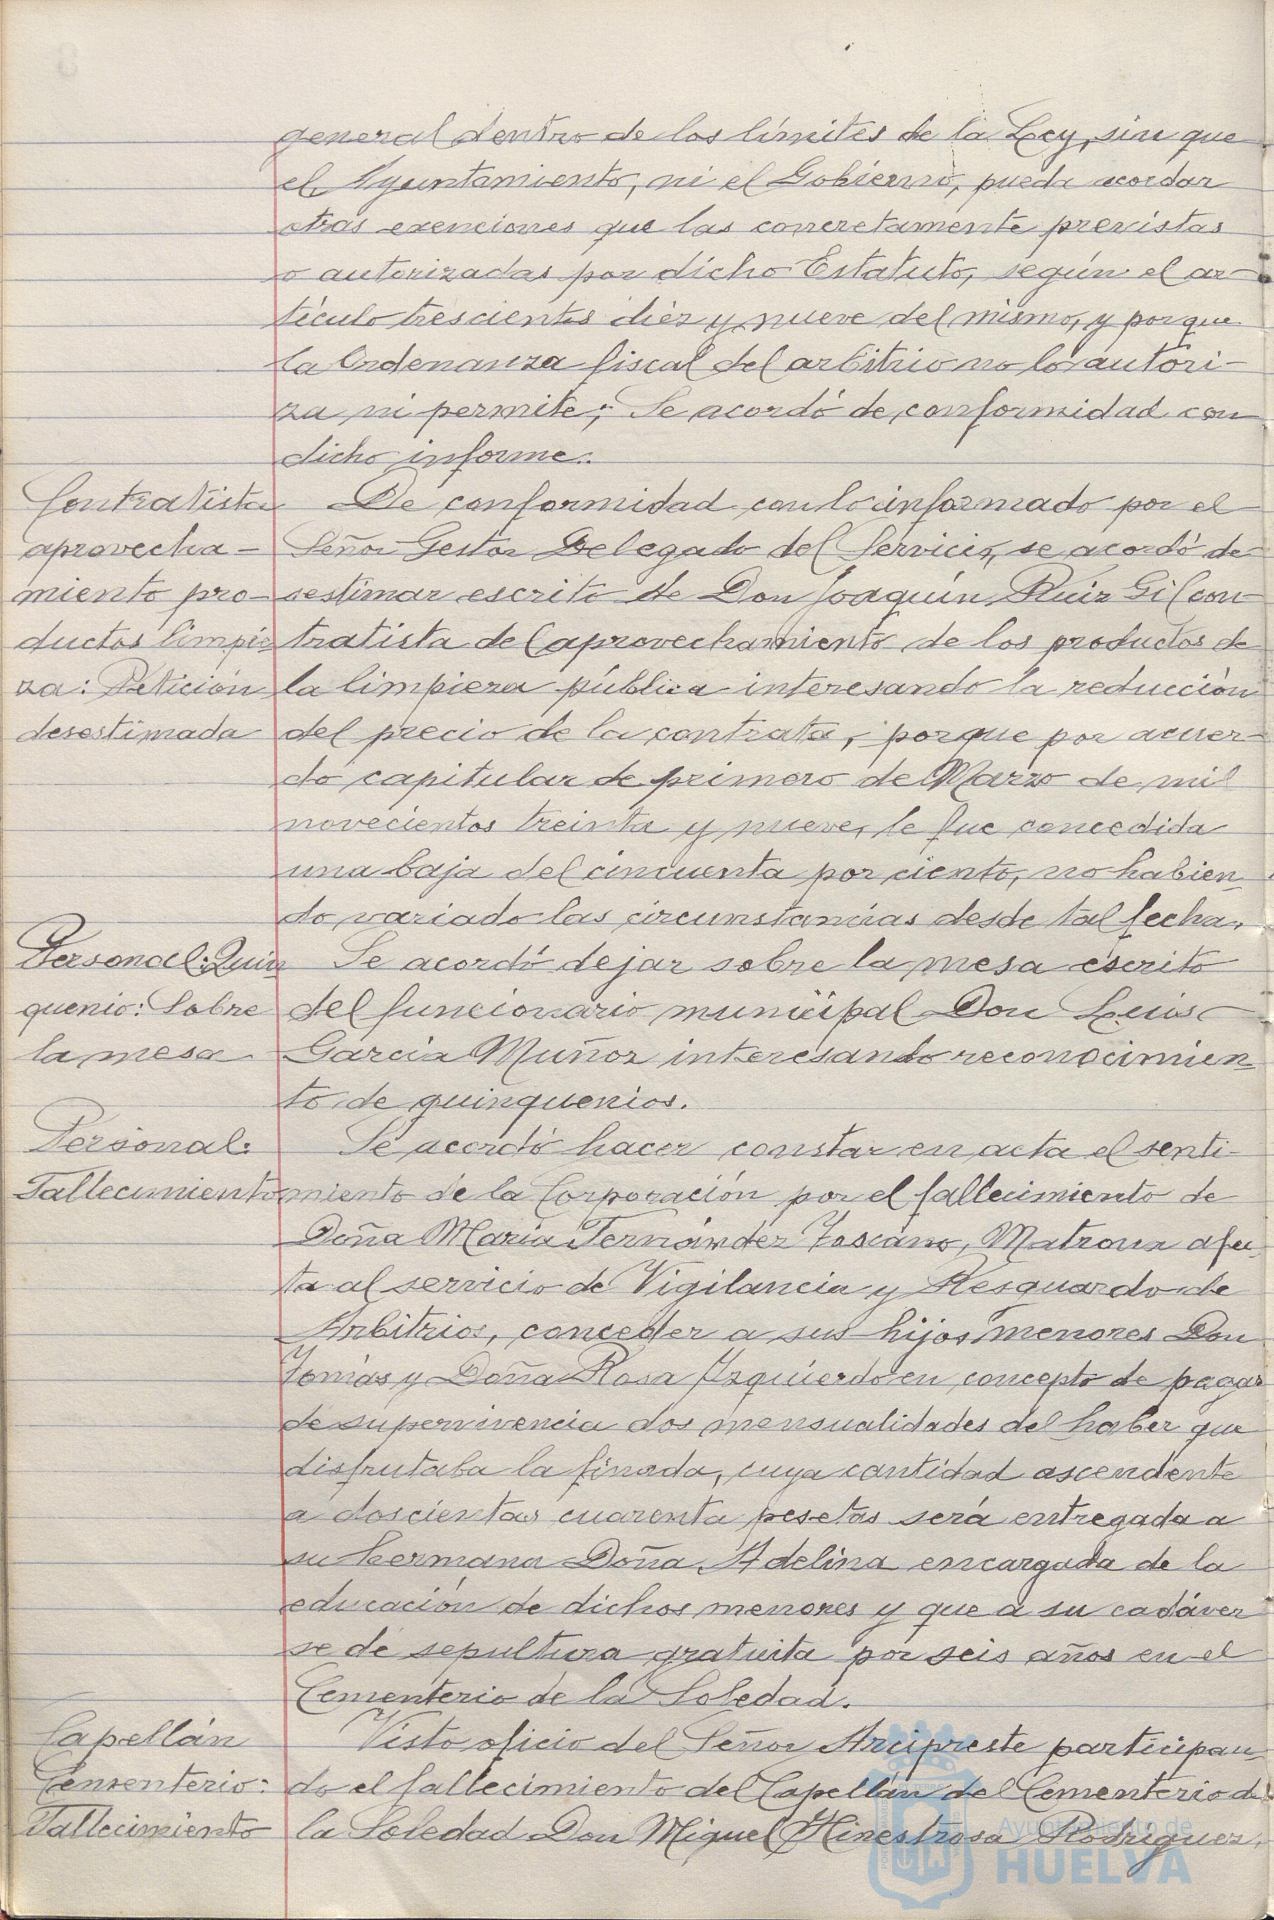 general dentro de los límites de la Ley, sin que
el Ayuntamiento, ni el Gobierno, pueda acordar
otras exenciones que las concretamente previstas
o autorizadas por dicho Estatuto, según el ar-
tículo trescientos diez y nueve del mismo, y porque
la Ordenanza fiscal del arbitrio no lo autori-
za ni permite; Se acordó de conformidad con
dicho informe.
Contratista
aprovecha-
miento pro-
ductos limpie-
za: Petición
desestimada
De conformidad con lo informado por el
Señor Gestor Delegado del Servicio, se acordó de-
sestimar escrito de Don Joaquín Ruiz Gil con-
tratista del aprovechamiento de los productos de
la limpieza pública interesando la reducción
del precio de la contrata, porque por acuer-
do capitular de primero de Marzo de mil
novecientos treinta y nueve, le fue concedida
una baja del cincuenta por ciento, no habien-
do variado las circunstancias desde tal fecha.
Personal: Quin
quenio: Sobre
la mesa
Se acordó dejar sobre la mesa escrito
del funcionario municipal Don Luis
García Muñoz interesando reconocimien-
to de quinquenios.
Personal:
Fallecimiento
Se acordó hacer constar en acta el senti-
miento de la Corporación por el fallecimiento de
Doña María Fernández Toscano, Matrona afec-
ta al servicio de Vigilancia y Resguardo de
Arbitrios, conceder a sus hijos menores Don
Tomás y Doña Rosa Izquierdo en concepto de pagas
de supervivencia dos mensualidades del haber que
disfrutaba la finada, cuya cantidad ascendente
a doscientas cuarenta pesetas será entregada a
su hermana Doña Adelina encargada de la
educación de dichos menores y que a su cadáver
se dé sepultura gratuita por seis años en el
Cementerio de la Soledad.
Capellán
Cementerio:
Fallecimiento
Visto oficio del Señor Arcipreste participan-
do el fallecimiento del Capellán del Cementerio de
la Soledad Don Miguel Hinestrosa Rodríguez,
Ayuntamiento de
HUELVA